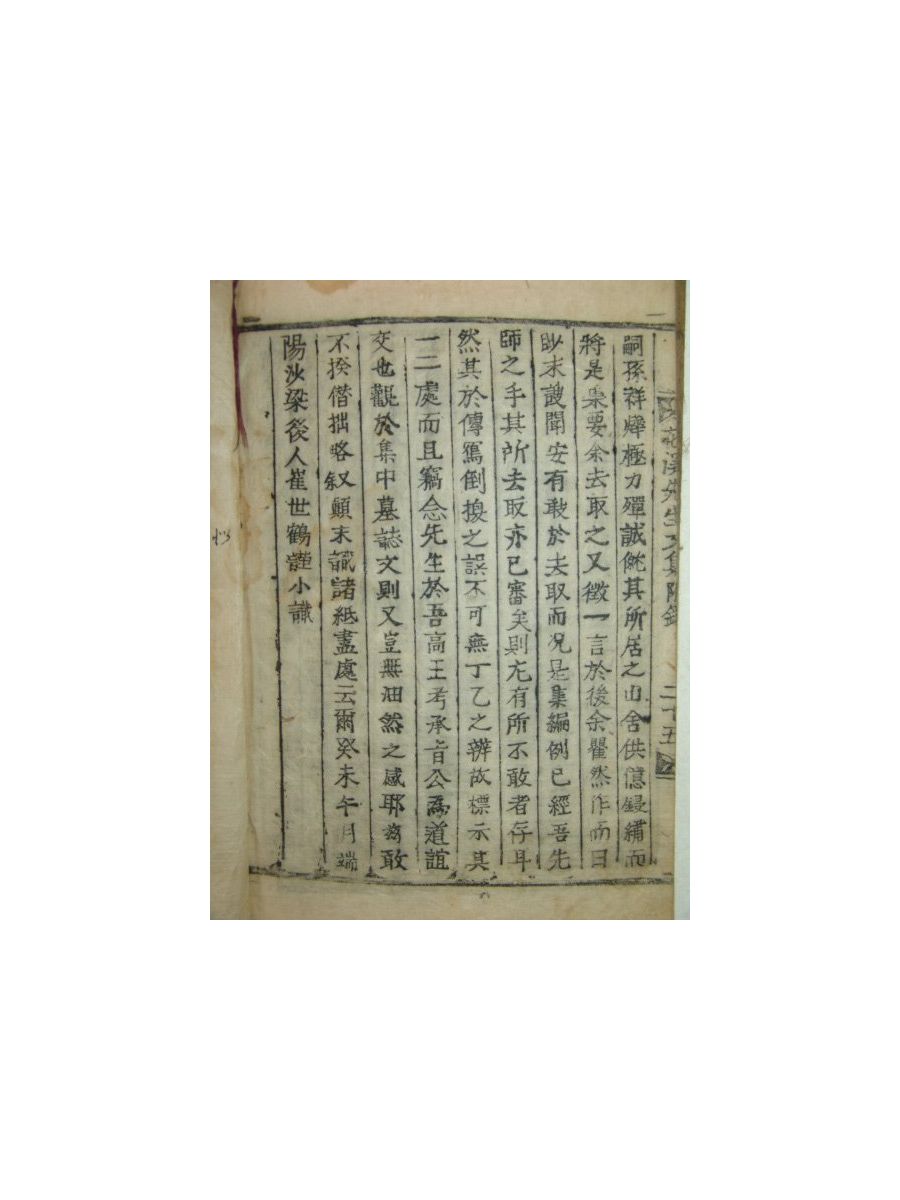 嗣孫祥燁極力殫誠就其所居之山舍供億鋟繡而
將是槖要余去取之又徵一言於後余瞿然作而曰
眇末謏聞安有敢於去取而况是集編例已經吾先
師之手其所去取亦已審矣則尤有所不敢者存耳
然其於傳寫倒換之誤不可無丁乙之辨故標示其
一二處而且竊念先生於吾高王考承旨公爲道誼
交也觀於集中墓誌文則又豈無油然之感耶玆敢
不揆僭拙略叙顚末識諸紙盡處云爾癸未午月端
陽沙梁後人崔世鶴謹小識
花溪先生文集附錄 二十五